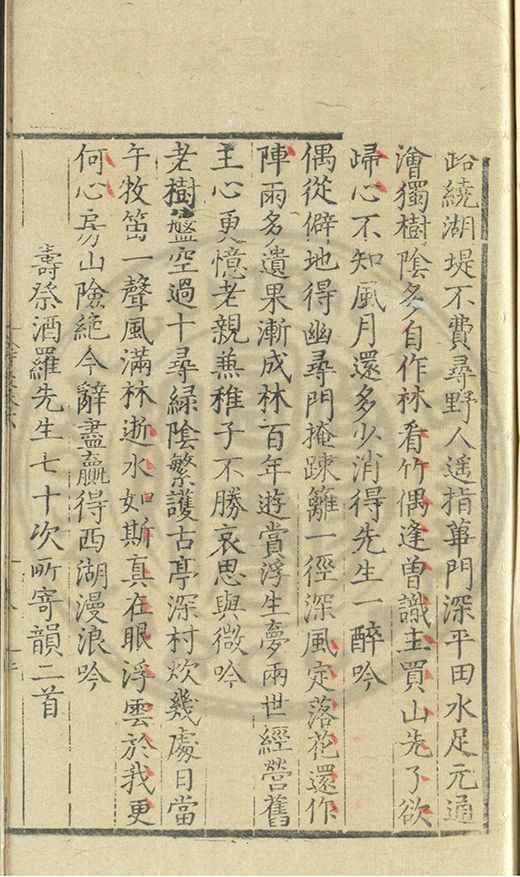 路繞湖堤不費尋野人遙指蓽門深平田水足元通
澮獨樹陰多自作林看竹偶逢曾識主買山先了欲
歸心不知風月還多少消得先生一醉吟
偶從僻地得幽尋門掩踈籬一徑深風定落花還作
陣雨多遺果漸成林百年遊賞浮生夢兩世經營舊
主心更憶老親兼稚子不勝哀思與微吟
老樹盤空過十尋綠陰繁護古亭深村炊幾處日當
午牧笛一聲風滿林逝水如斯真在眼浮雲於我更
何心房山險絕今辭盡贏得西湖漫浪吟
壽祭酒羅先生七十次所寄韻二首